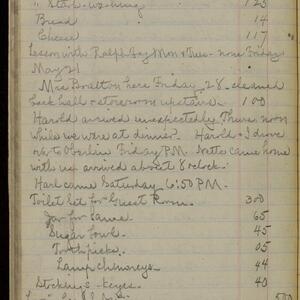 " Starch - washing 125
Bread 14
Cheese 117
Lesson with Ralph Gay Mon & Tues - none Friday
May 21
Mrs Boalton here Friday, 28 cleaned
back hall & storeroom upstairs. 100
Harold arrived unexpectedly Thurs noon
while we were at dinner. Harold & I drove
to Oberlin Friday P.M. Netta came home
with us arrived about 8 o'clock.
Harl came Saturday 6:50 P.M.
Toilet Set for Guest Room. 300
Jar for same 65
Sugar bowl 45
Toothpicks 05
Lamp chimneys 44
Stockings - keyes. 40
500